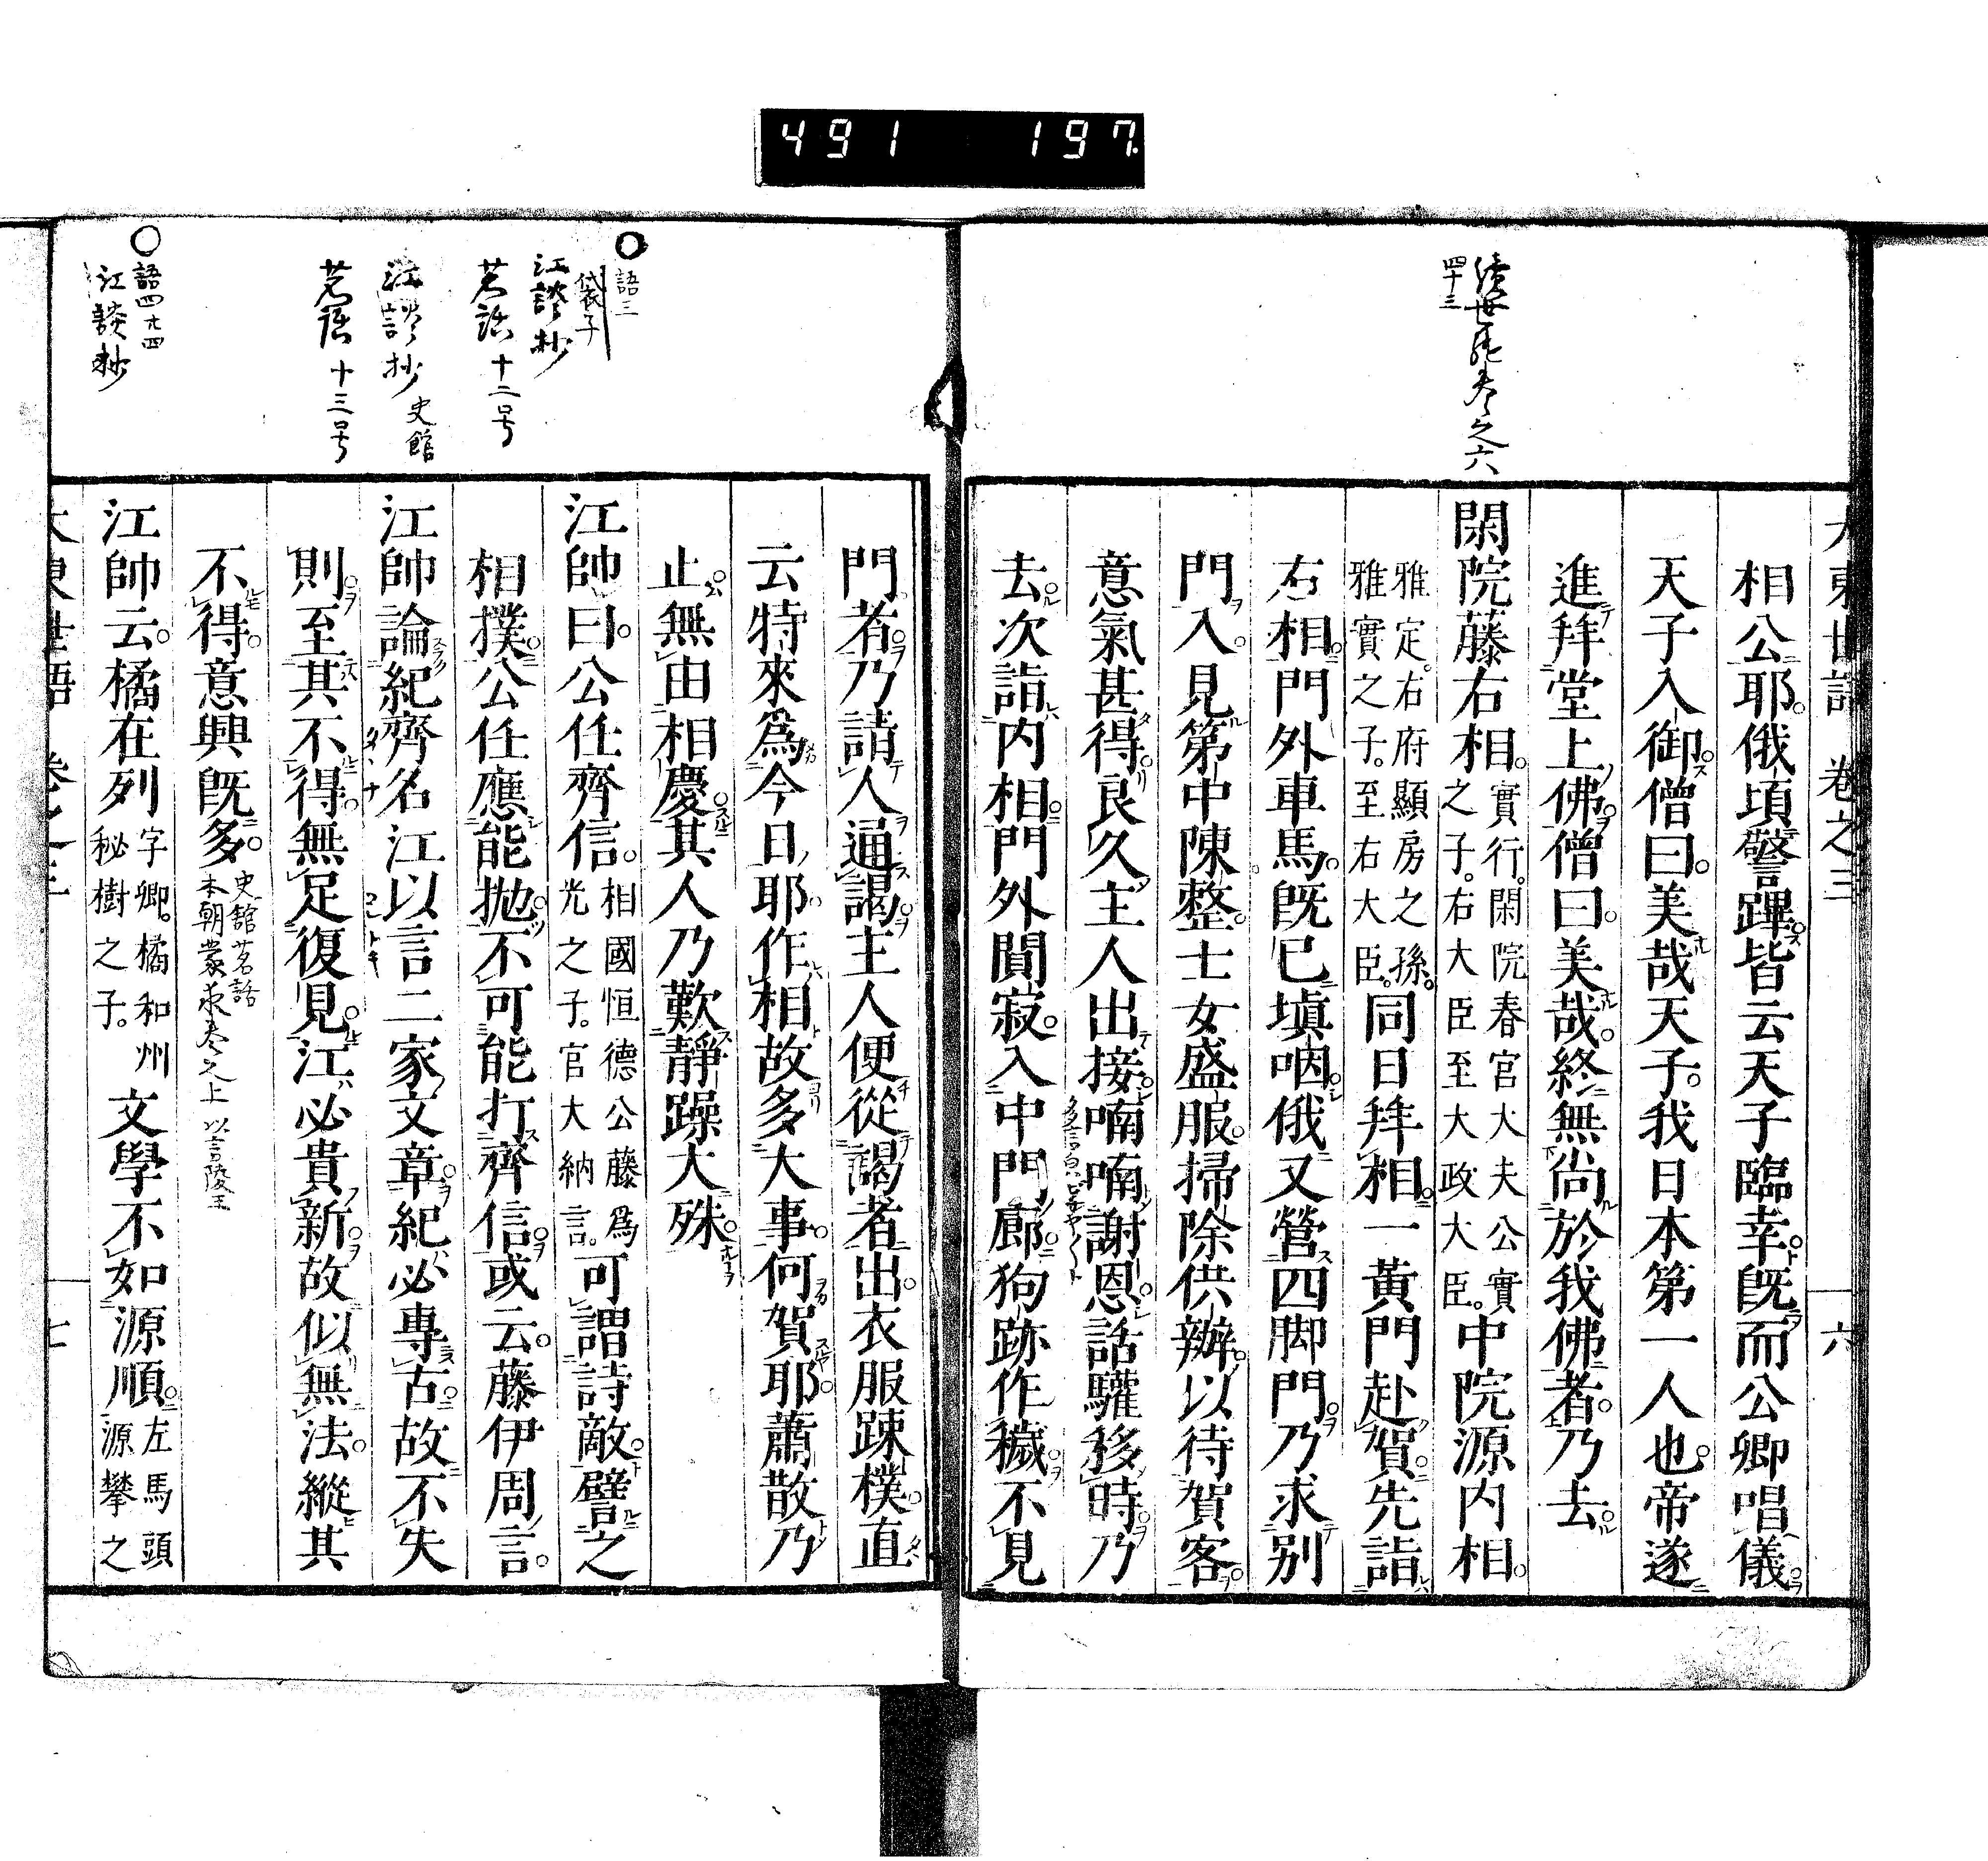 491 197
大東世語 卷之三 六
續世継卷之六
四十三
相公耶俄頃警蹕皆云天子臨幸既而公卿唱儀
天子入御僧曰美哉天子我日本第一人也帝遂
進拜堂上佛僧曰美哉終無尚於我佛者乃去
閑院藤右相實行閑院春宮大夫公實之子右大臣至大政大臣中院源内相
雅定右府顯房之孫雅實之子至右大臣同日拜相一黃門赴賀先詣
右相門外車馬既已塡咽俄又營四脚門乃求別
門入見第中陳整士女盛服掃除供辦以待賀客
意氣甚得良久主人出接喃喃謝恩話驩移時乃
去次詣内相門外閴寂入中門廊狗跡作穢不見
門者乃請人通謁主人便從謁者出衣服踈樸直
云特來爲今日耶作相故多大事何賀耶蕭散乃
止無由相慶其人乃歎靜躁大殊
語三
袋子
江談抄
茗話十二号
江帥曰公任齊信相國恒德公藤爲光之子官大納言可謂詩敵譬之
相撲公任應能抛不可能打齊信或云藤伊周言
江談抄 史館
茗話十三号
江帥論紀齊名江以言二家文章紀必專古故不失
則至其不得無足復見江必貴新故似無法縱其
不得意興既多
史館茗話
本朝蒙求卷之上
語四
江談抄
江帥云橘在列字卿橘和州秘樹之子文學不如源順左馬頭源攀之
大東世語 卷之三 七